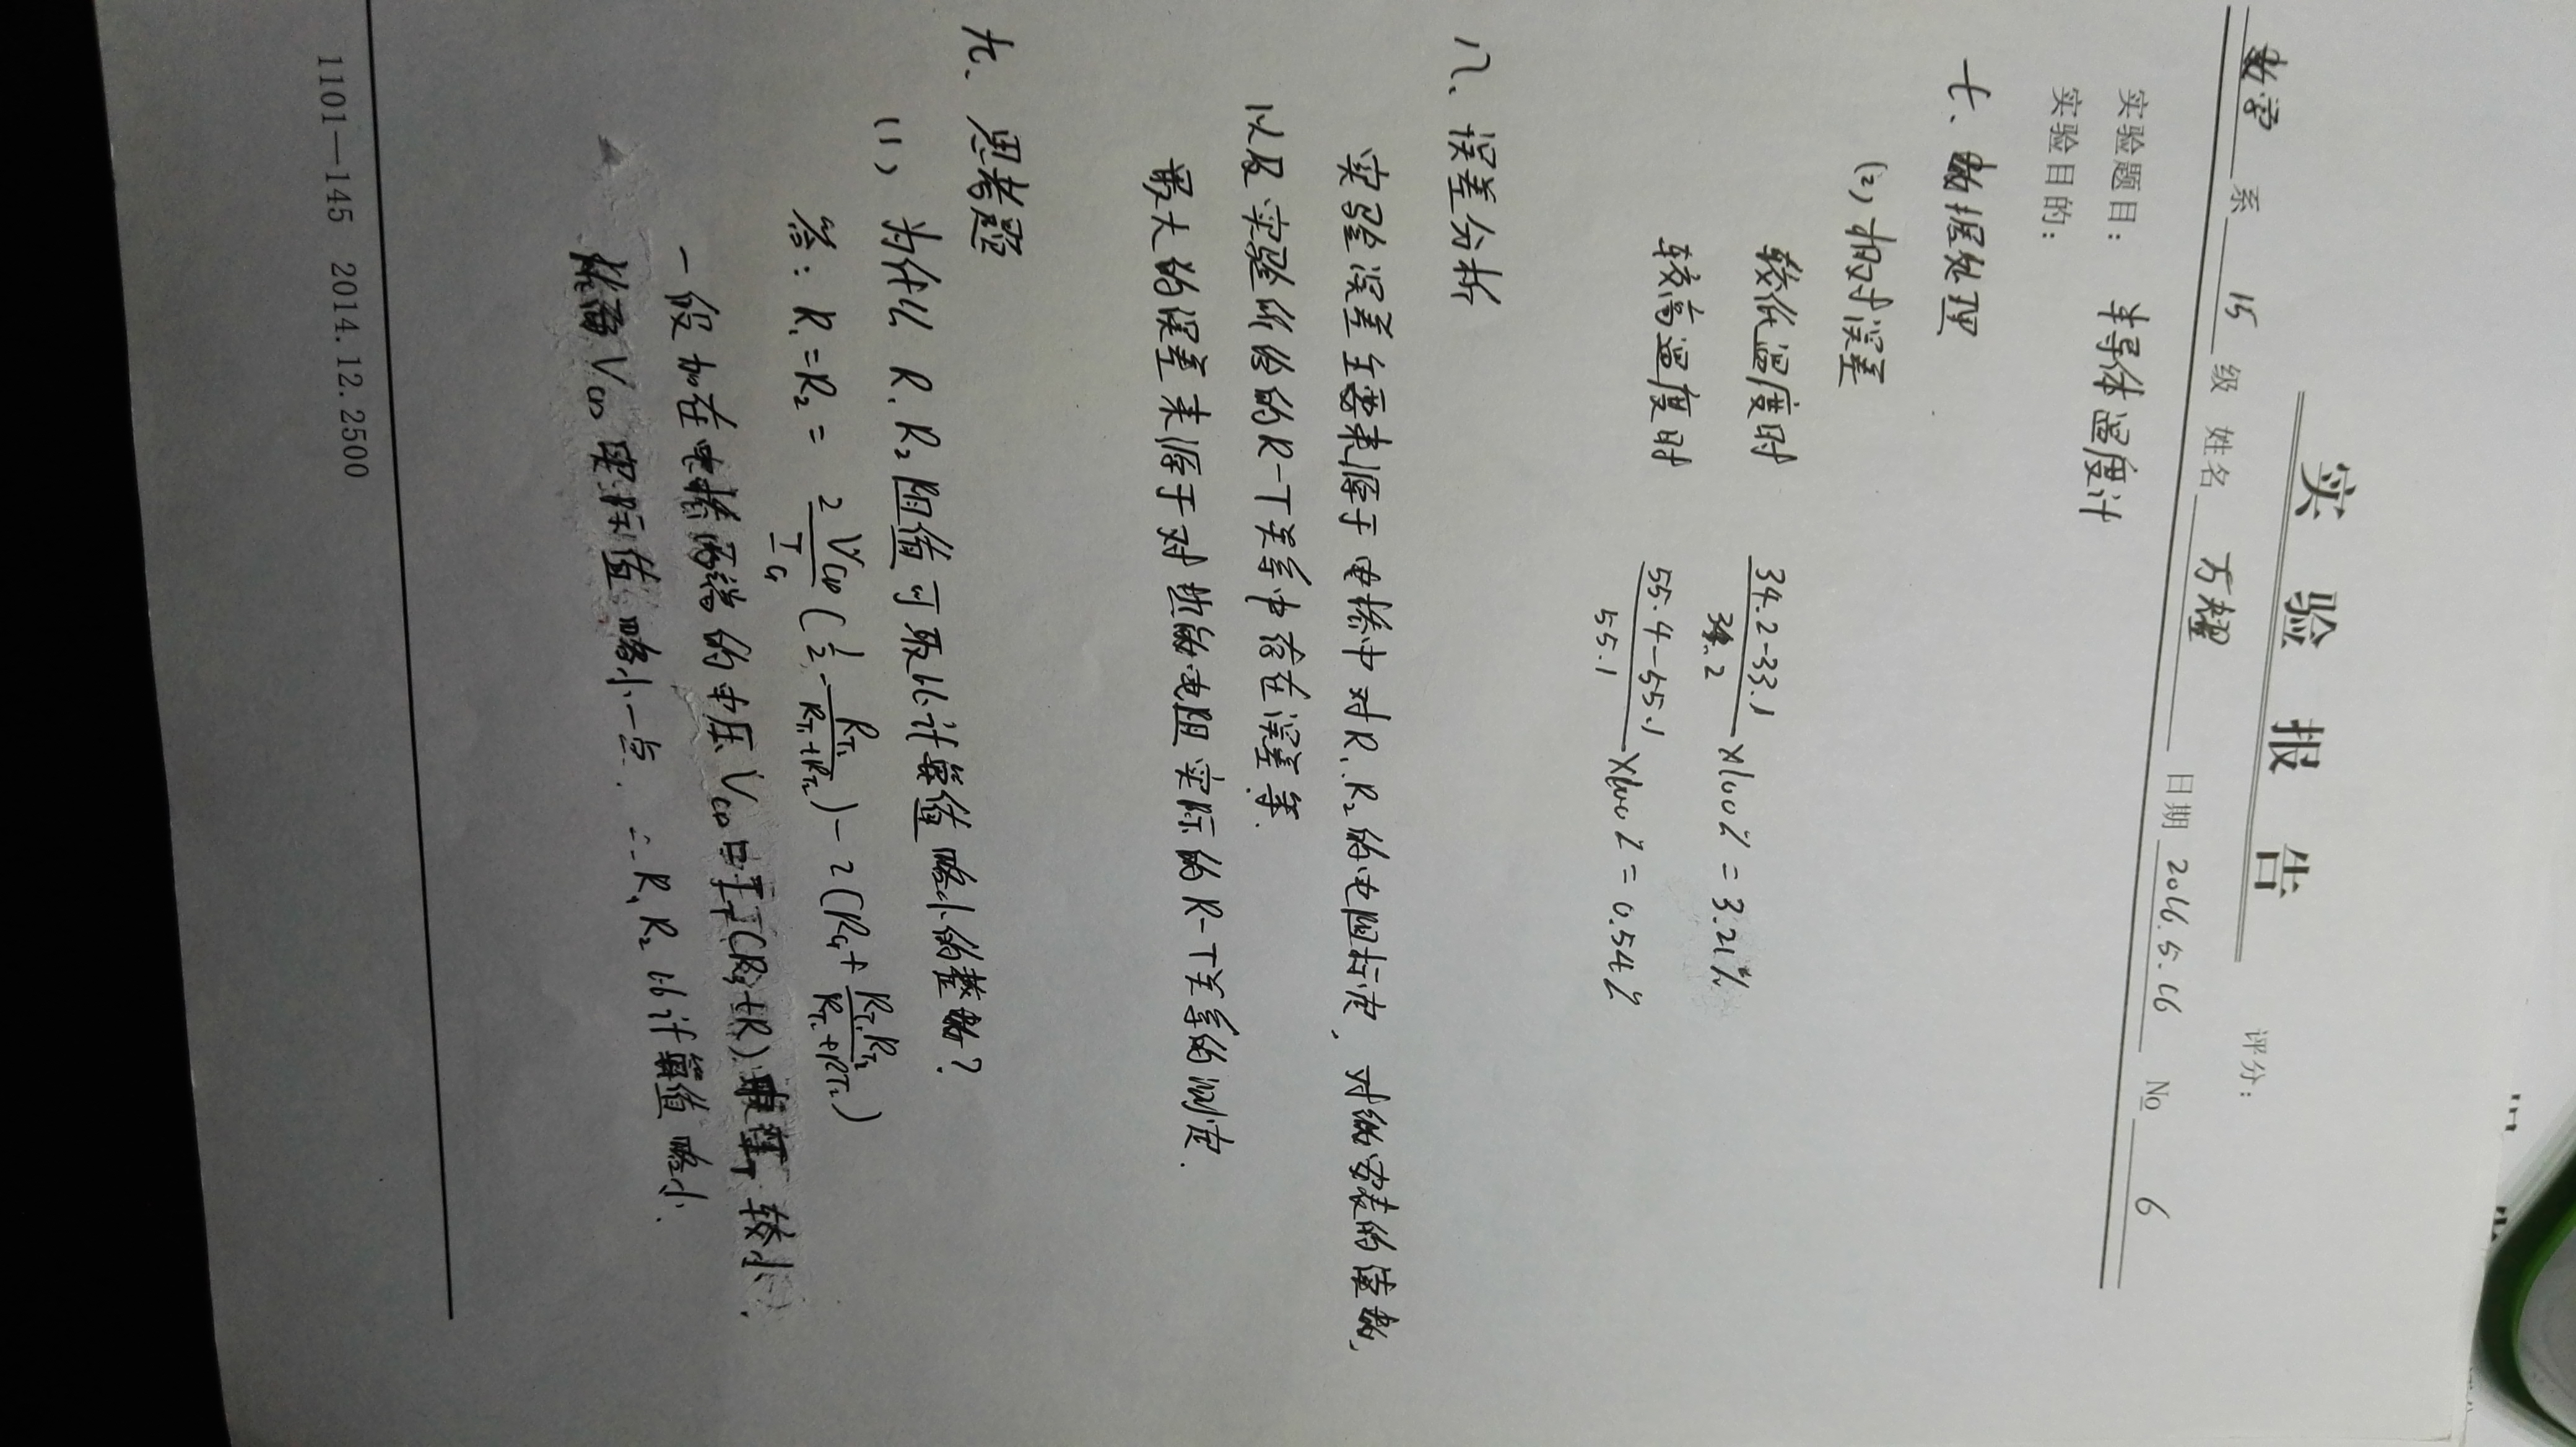 实 验 报 告
评分：
数学 系 15 级 姓名 方耀 日期 2016.5.16 No 6
实验题目： 半导体温度计
实验目的：
七、数据处理
(2) 相对误差
较低温度时 34.2-33.1/34.2 ×100% = 3.21%
较高温度时 55.4-55.1/55.1 ×100% = 0.54%
八、误差分析
实验误差主要来源于电桥中对R₁、R₂的电阻标定、对微安表的读数，
以及实验所给的R-T关系中存在误差等.
最大的误差来源于对热敏电阻实际的R-T关系的测定.
九、思考题
(1) 为什么R₁R₂阻值可取比计算值略小的整数？
答：R₁=R₂= 2V_CD/I_G (1/2 - R_T₁/(R_T₁+R_T₂)) - 2(R_G + R_T₁R_T₂/(R_T₁+R_T₂))
一般加在电桥两端的电压V_CD 由于I_T(R₃+R) 较小.
V_CD 实际值略小一点. ∴R₁R₂比计算值略小.
1101—145 2014.12.2500